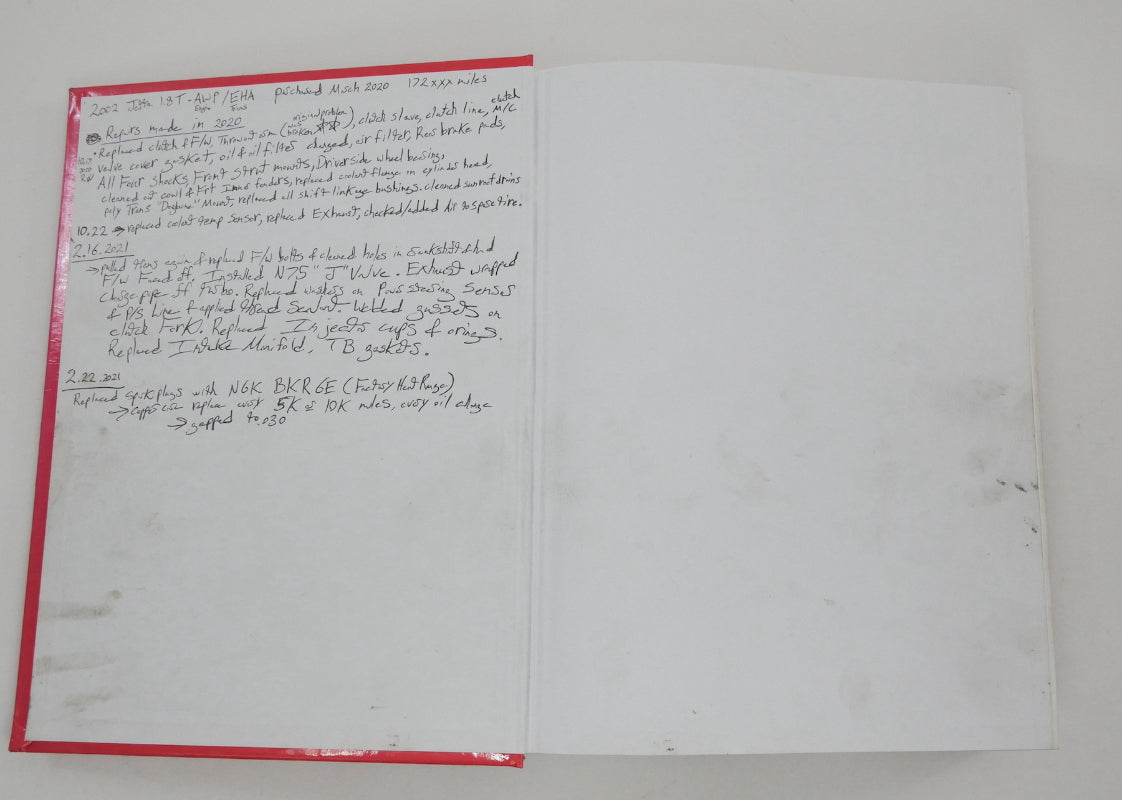 2002 Jetta 1.8T-AWP/EHA purchased March 2020 172xxx miles
Engine Trans
Repairs made in 2020
original problem
was
clutch
• Replaced clutch & F/W, Throwout arm (broken), clutch slave, clutch line, M/C
valve cover gasket, oil & oil filter changed, air filter, Rear brake pads,
All Four Shocks, Front Strut mounts, Driver side wheel bearing,
cleaned out cowl & Frt Inner fenders, replaced coolant flange on cylinder head,
poly Trans "Dogbone" Mount replaced all shift linkage bushings. cleaned sunroof drains
10.22 → replaced coolant temp sensor, replaced Exhaust, checked/added Air to spare tire.
2.16.2021
→ pulled trans again & replaced F/W bolts & cleaned holes in crankshaft & had
F/W Faced off. Installed N75 "J" Valve. Exhaust wrapped
charge pipe off Turbo. Replaced washers on Power steering sensor
& P/S Line & applied thread Sealant. Welded gussets on
clutch Fork. Replaced Injector cups & orings.
Replaced Intake Manifold, TB gaskets.
2.22.2021
Replaced spark plugs with NGK BKR6E (Factory Heat Range)
→ copper core replace every 5K or 10K miles, every oil change
→ gapped to .030